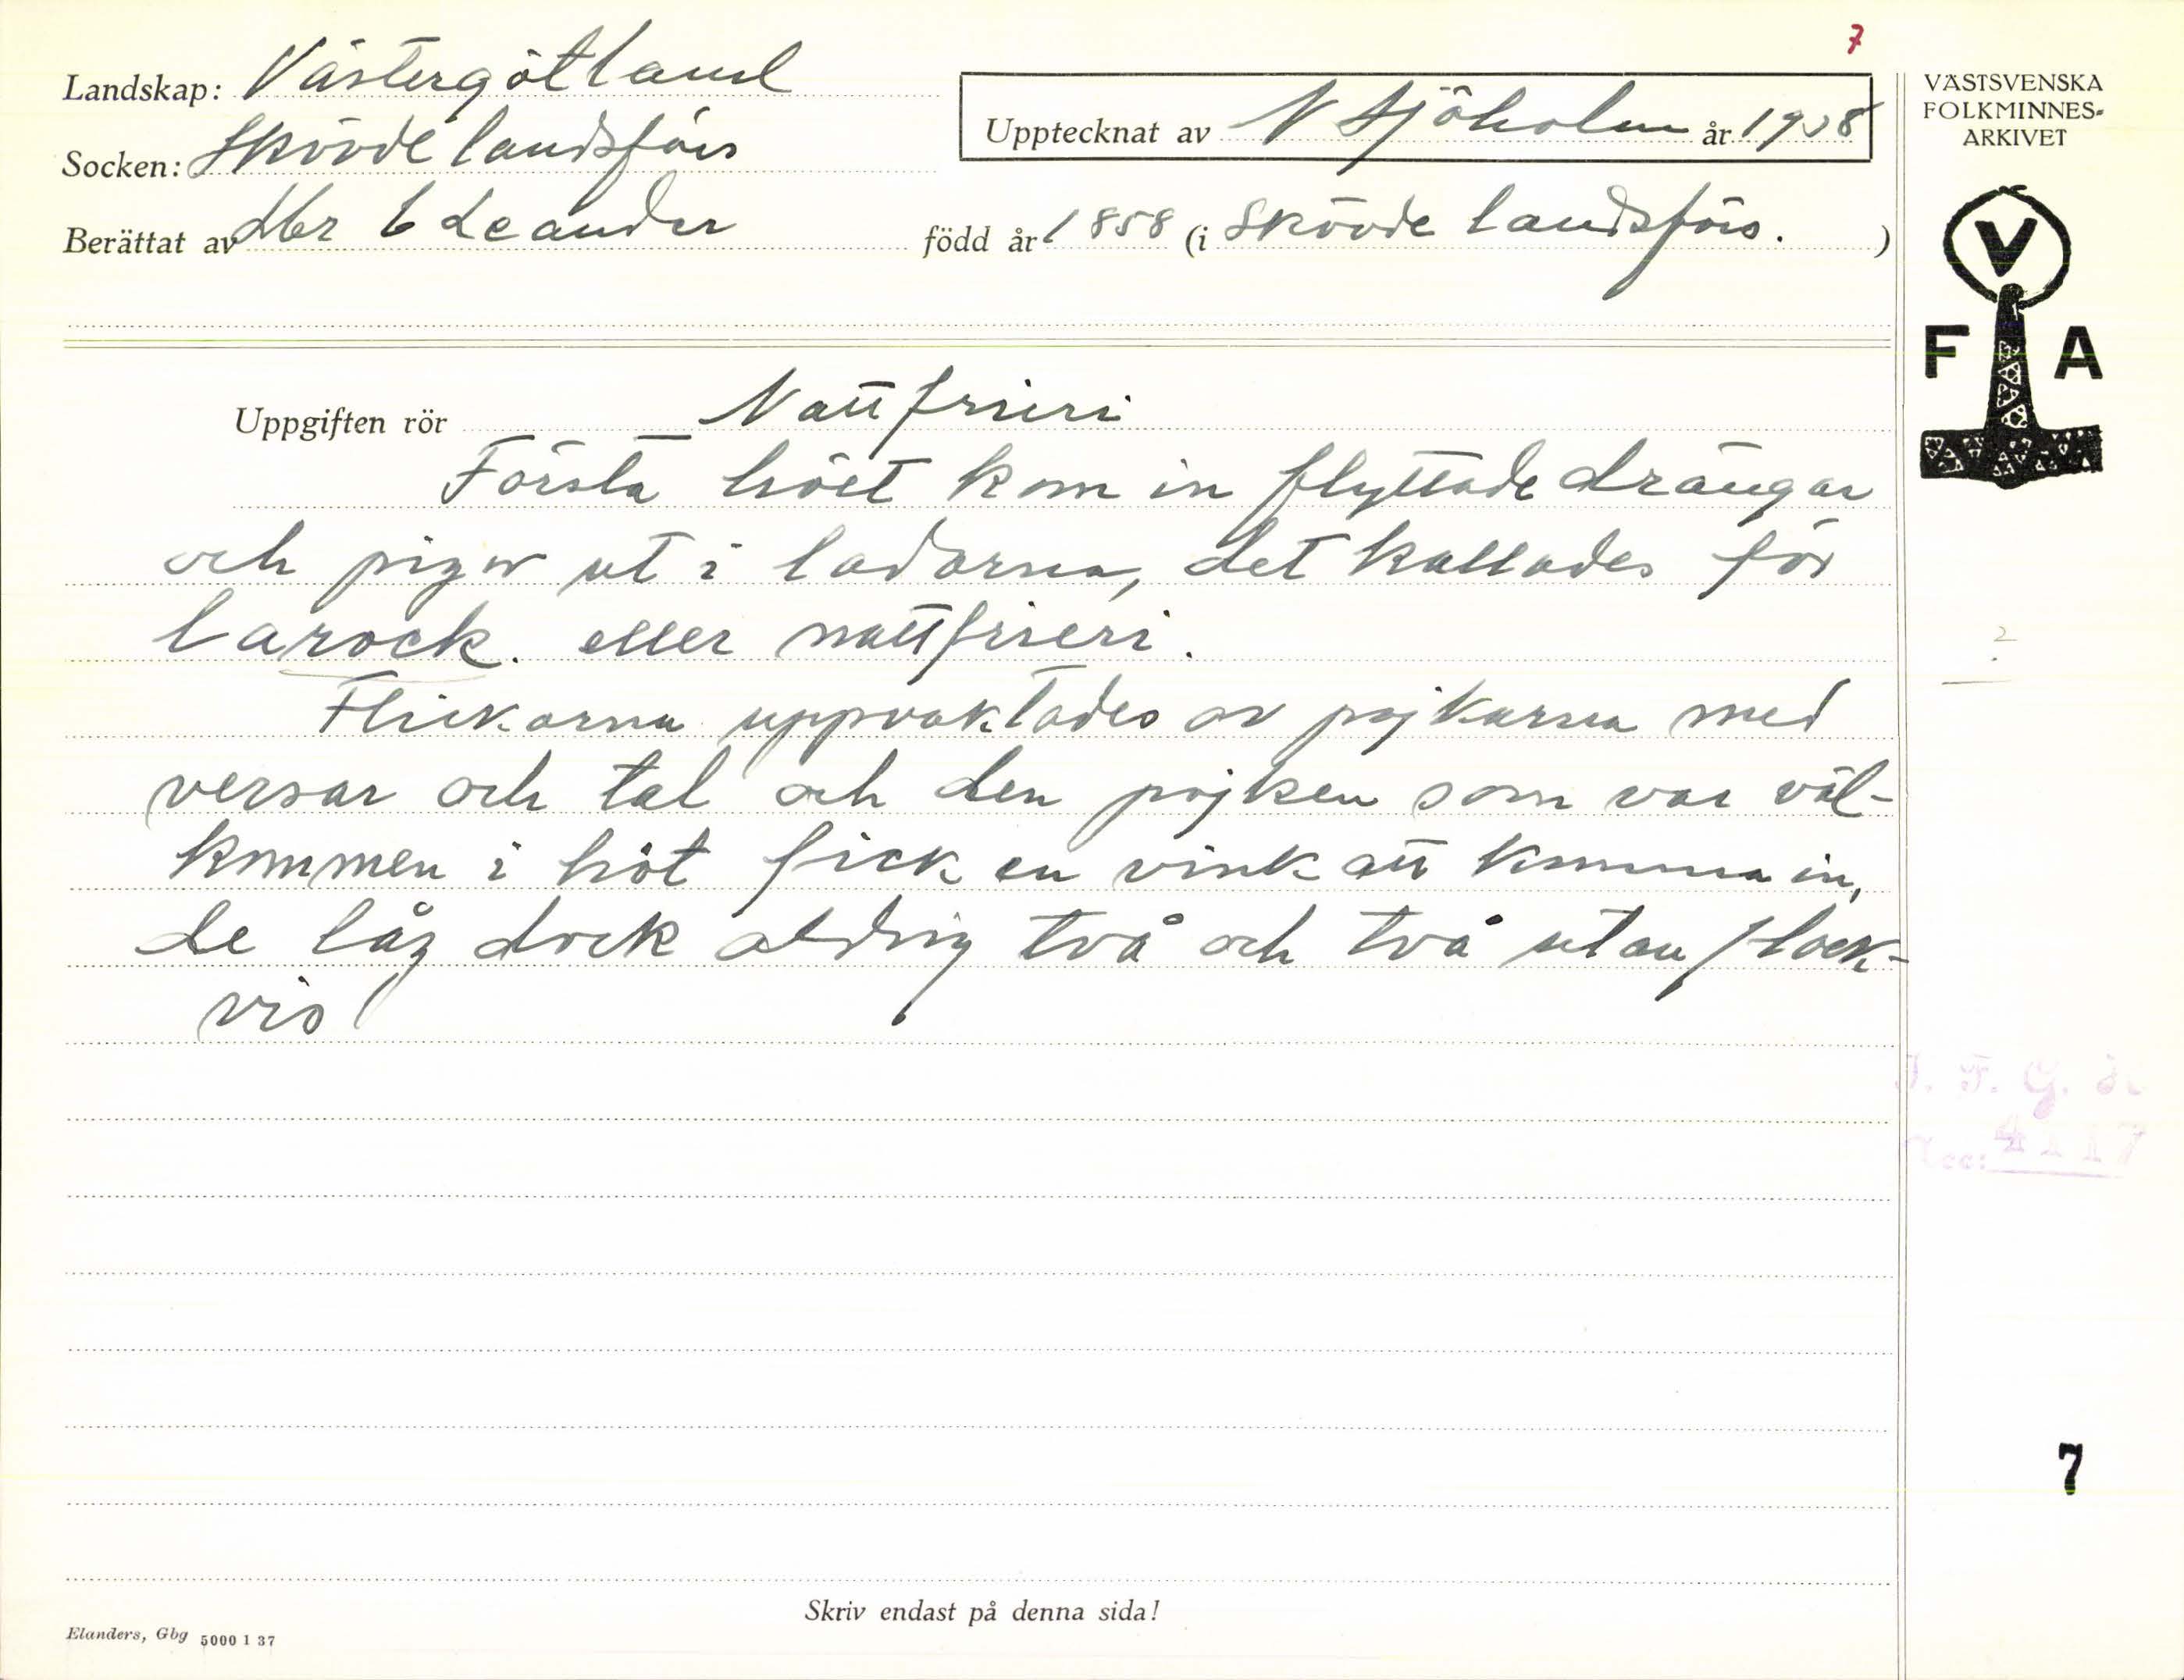 7
Landskap: Västergötland
Upptecknat av N Sjöholm år 1938
VÄSTSVENSKA
FOLKMINNES-
ARKIVET
Socken: Skövde landsförs
Berättat av Hbr Leander född år 1858 (i Skövde landsförs. )
V
F A
Uppgiften rör Nattfrieri
Första höet kom in flyttade drängar
och pigor ut i ladorna, det kallades för
larock. eller nattfrieri.
2
Flickorna uppvaktades av pojkarna med
versar och tal och den pojken som var väl-
kommen i höt fick en vink att komma in,
de låg dock aldrig två och två utan flock-
vis
I. F. G. s
Acc: 4117
7
Skriv endast på denna sida!
Elanders, Gbg 5000 1 37